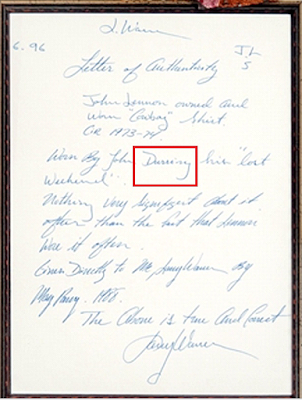 L. Warren
6.96
J.L
5
Letter of Authenticity
John Lennon owned And
Worn "Cowboy" Shirt.
CIR 1973-74.
Worn By John Durring his "Lost
Weekend".
Nothing very significant about it
other than the fact that Lennon
wore it often.
Given Directly to Me By
May Pang.
The Above is true And Correct